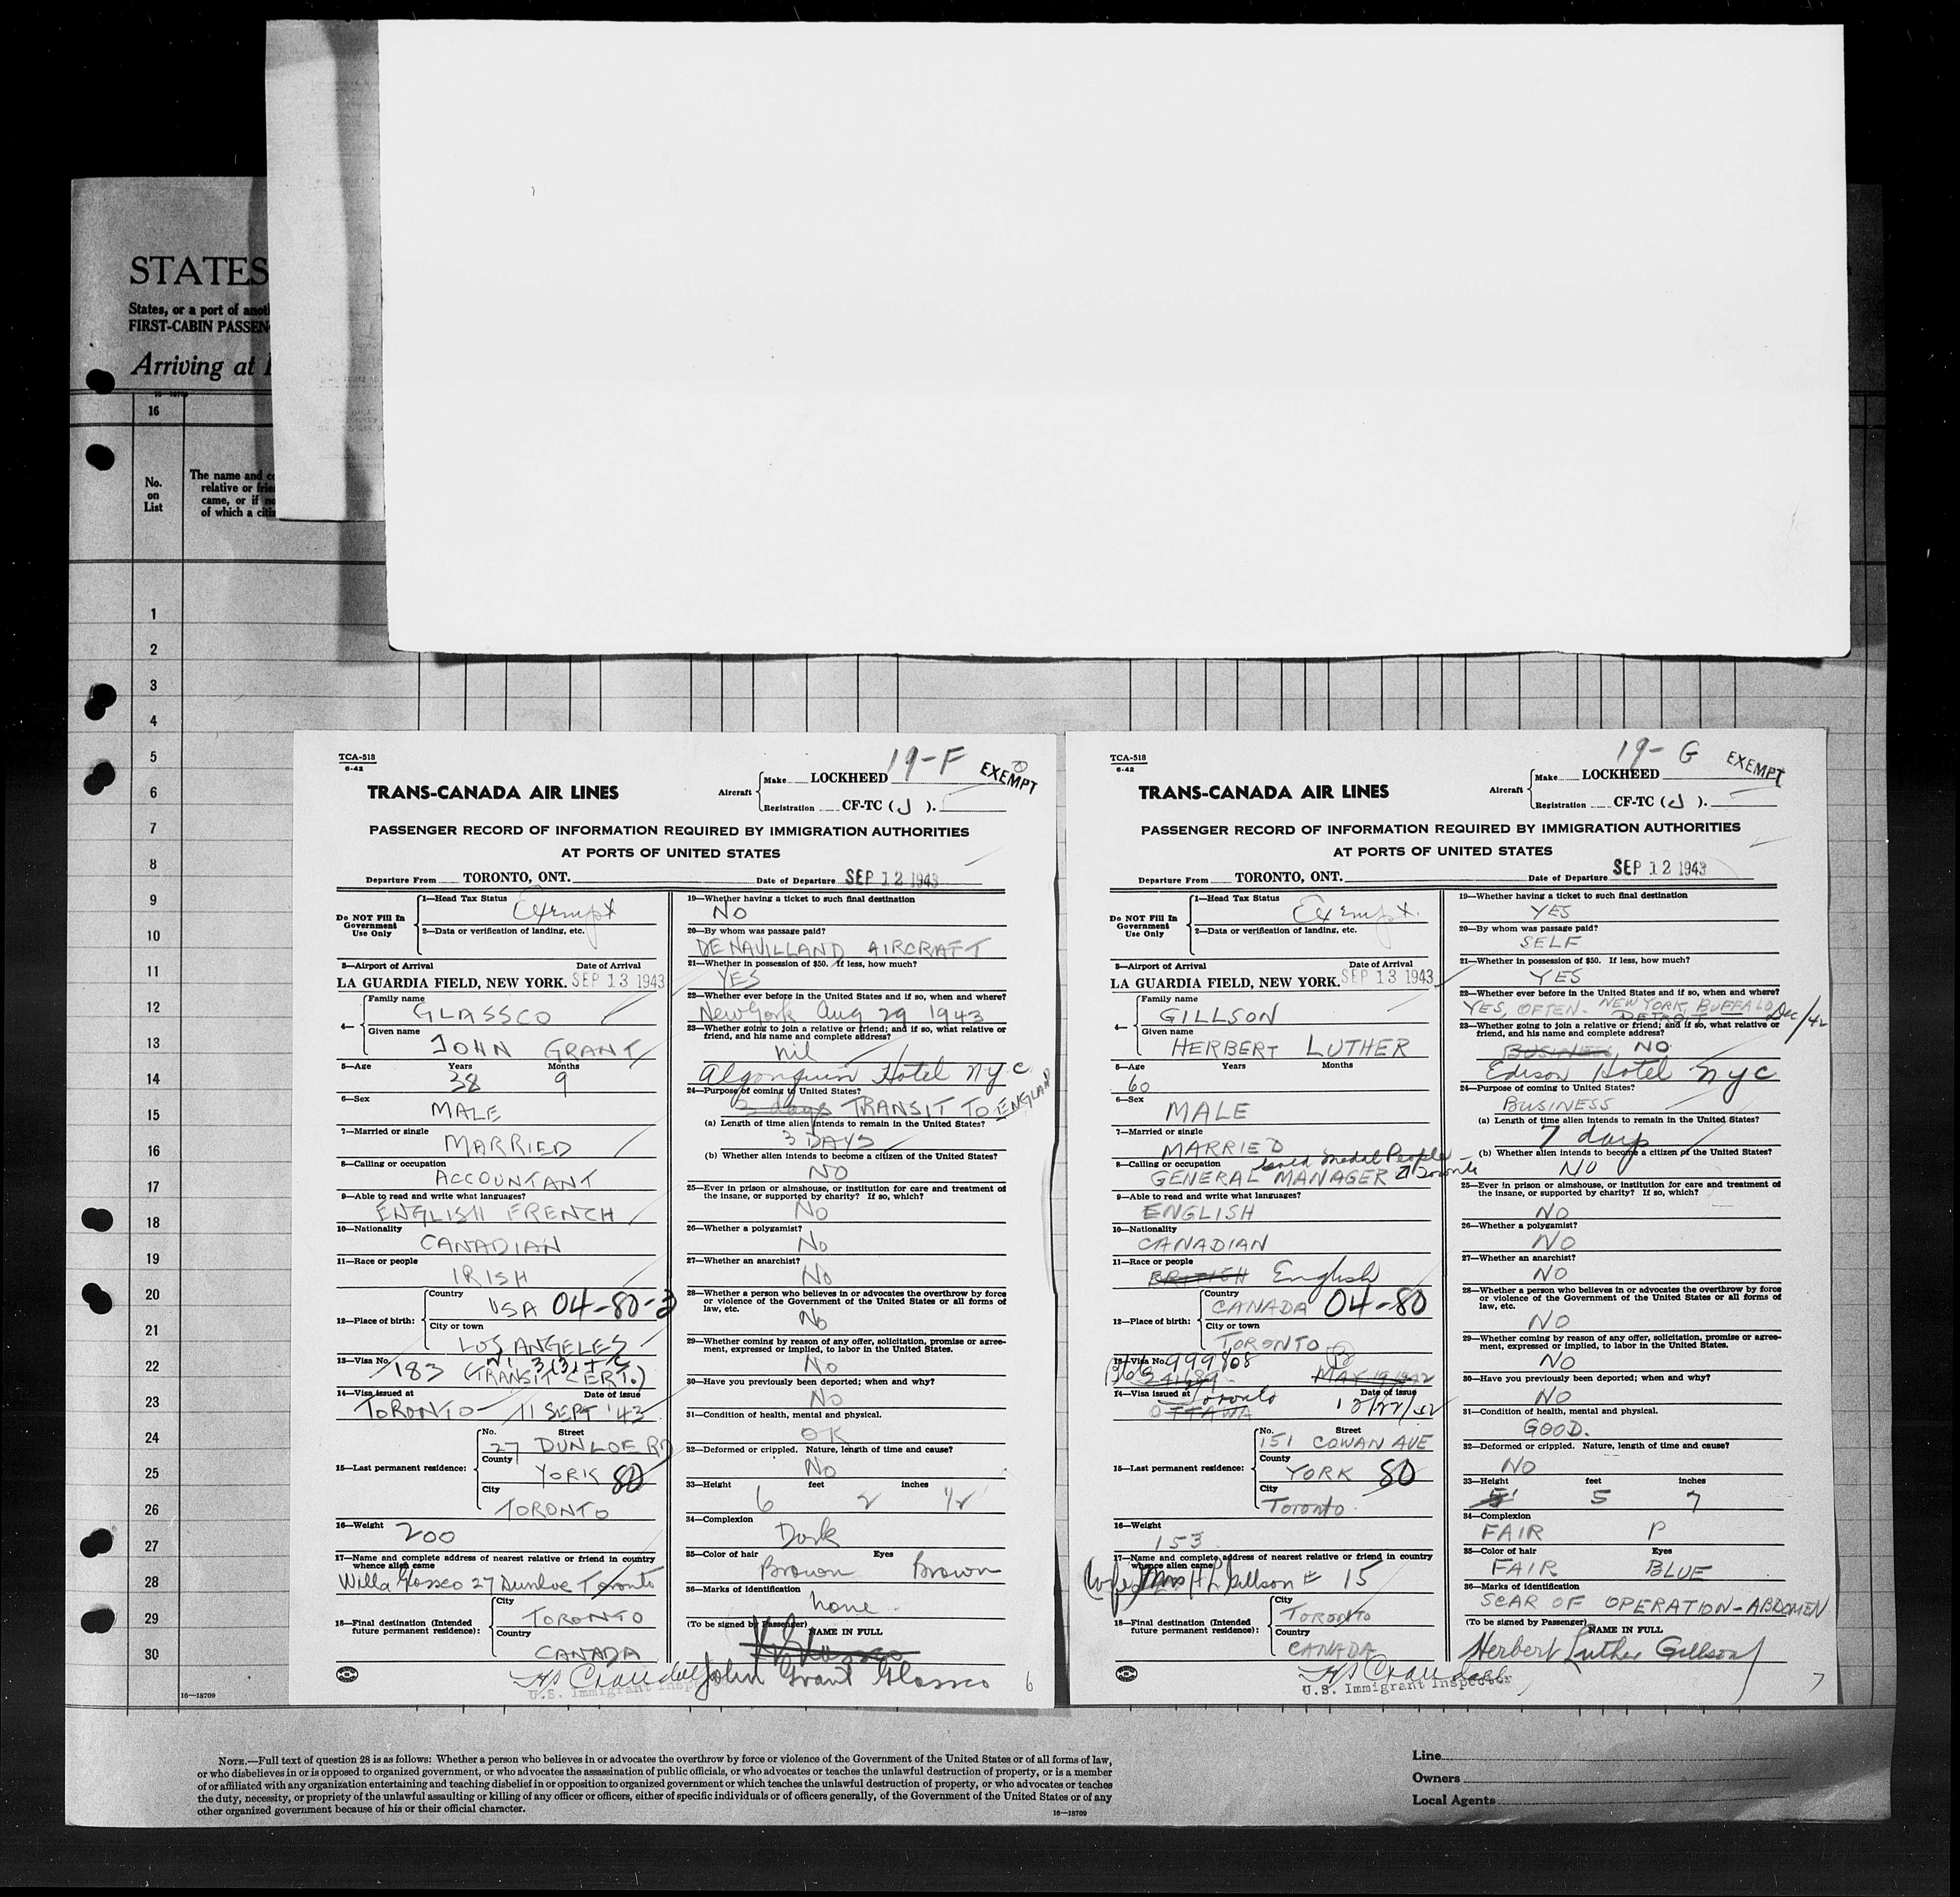 STATES
States, or a port of
FIRST-CABIN
Arriving at
16—18709
16
No.
on
List
The name and
relative or
came, or if
of which a
1
2
3
4
5
6
7
8
9
10
11
12
13
14
15
16
17
18
19
20
21
22
23
24
25
26
27
28
29
30
16—18709
TCA-518
6-42
19-F
EXEMPT
TRANS-CANADA AIR LINES
Aircraft
Make LOCKHEED
Registration CF-TC (J ).
PASSENGER RECORD OF INFORMATION REQUIRED BY IMMIGRATION AUTHORITIES
AT PORTS OF UNITED STATES
Departure From TORONTO, ONT. Date of Departure SEP 12 1943
Do NOT Fill In
Government
Use Only
1—Head Tax Status
Exempt
2—Data or verification of landing, etc.
3—Airport of Arrival Date of Arrival
LA GUARDIA FIELD, NEW YORK. SEP 13 1943
4—
Family name
GLASSCO
Given name
JOHN GRANT
5—Age Years Months
38 9
6—Sex
MALE
7—Married or single
MARRIED
8—Calling or occupation
ACCOUNTANT
9—Able to read and write what languages?
ENGLISH FRENCH
10—Nationality
CANADIAN
11—Race or people
IRISH
12—Place of birth:
Country
USA 04-80-3
City or town
LOS ANGELES
13—Visa No.
183 (TRANSIT CERT.)
14—Visa issued at Date of issue
TORONTO 11 SEPT '43
15—Last permanent residence:
No. Street
27 DUNLOE RD
County
YORK 80
City
TORONTO
16—Weight
200
17—Name and complete address of nearest relative or friend in country
whence alien came
Willa Glassco 27 Dunloe Toronto
18—Final destination (Intended
future permanent residence):
City
TORONTO
Country
CANADA
19—Whether having a ticket to such final destination
NO
20—By whom was passage paid?
DE HAVILLAND AIRCRAFT
21—Whether in possession of $50. If less, how much?
YES
22—Whether ever before in the United States and if so, when and where?
New York Aug 29 1943
23—Whether going to join a relative or friend; and if so, what relative or
friend, and his name and complete address?
nil
Algonquin Hotel NYC
24—Purpose of coming to United States?
3 days TRANSIT TO ENGLAND
(a) Length of time alien intends to remain in the United States?
3 DAYS
(b) Whether alien intends to become a citizen of the United States?
NO
25—Ever in prison or almshouse, or institution for care and treatment of
the insane, or supported by charity? If so, which?
NO
26—Whether a polygamist?
No
27—Whether an anarchist?
No
28—Whether a person who believes in or advocates the overthrow by force
or violence of the Government of the United States or all forms of
law, etc.
No
29—Whether coming by reason of any offer, solicitation, promise or agree-
ment, expressed or implied, to labor in the United States.
No
30—Have you previously been deported; when and why?
NO
31—Condition of health, mental and physical.
OK
32—Deformed or crippled. Nature, length of time and cause?
No
33—Height feet inches
6 2 1/2
34—Complexion
Dark
35—Color of hair Eyes
Brown Brown
36—Marks of identification
none
(To be signed by Passenger) NAME IN FULL
John Grant Glassco
U.S. Immigrant
6
TCA-518
6-42
19-G
EXEMPT
TRANS-CANADA AIR LINES
Aircraft
Make LOCKHEED
Registration CF-TC (J ).
PASSENGER RECORD OF INFORMATION REQUIRED BY IMMIGRATION AUTHORITIES
AT PORTS OF UNITED STATES
Departure From TORONTO, ONT. Date of Departure SEP 12 1943
Do NOT Fill In
Government
Use Only
1—Head Tax Status
Exempt.
2—Data or verification of landing, etc.
3—Airport of Arrival Date of Arrival
LA GUARDIA FIELD, NEW YORK. SEP 13 1943
4—
Family name
GILLSON
Given name
HERBERT LUTHER
5—Age Years Months
60
6—Sex
MALE
7—Married or single
MARRIED
8—Calling or occupation
GENERAL MANAGER Toronto
9—Able to read and write what languages?
ENGLISH
10—Nationality
CANADIAN
11—Race or people
BRITISH English
12—Place of birth:
Country
CANADA 04-80
City or town
TORONTO
13—Visa No. 999808
MAY 19 1942
14—Visa issued at Toronto Date of issue
OTTAWA 12/22/42
15—Last permanent residence:
No. Street
151 COWAN AVE
County
YORK 80
City
Toronto
16—Weight
153
17—Name and complete address of nearest relative or friend in country
whence alien came
(wife) Mrs H L Gillson # 15
18—Final destination (Intended
future permanent residence):
City
TORONTO
Country
CANADA
19—Whether having a ticket to such final destination
YES
20—By whom was passage paid?
SELF
21—Whether in possession of $50. If less, how much?
YES
22—Whether ever before in the United States and if so, when and where?
YES, OFTEN. NEW YORK, BUFFALO, DETROIT Dec/42
23—Whether going to join a relative or friend; and if so, what relative or
friend, and his name and complete address?
BUSINESS NO
Edison Hotel NYC
24—Purpose of coming to United States?
BUSINESS
(a) Length of time alien intends to remain in the United States?
7 days
(b) Whether alien intends to become a citizen of the United States?
NO
25—Ever in prison or almshouse, or institution for care and treatment of
the insane, or supported by charity? If so, which?
NO
26—Whether a polygamist?
NO
27—Whether an anarchist?
NO
28—Whether a person who believes in or advocates the overthrow by force
or violence of the Government of the United States or all forms of
law, etc.
NO
29—Whether coming by reason of any offer, solicitation, promise or agree-
ment, expressed or implied, to labor in the United States.
NO
30—Have you previously been deported; when and why?
NO
31—Condition of health, mental and physical.
GOOD.
32—Deformed or crippled. Nature, length of time and cause?
NO
33—Height feet inches
5 7
34—Complexion
FAIR P
35—Color of hair Eyes
FAIR BLUE
36—Marks of identification
SCAR OF OPERATION-ABDOMEN
(To be signed by Passenger) NAME IN FULL
Herbert Luther Gillson
U.S. Immigrant Inspector
7
NOTE.—Full text of question 28 is as follows: Whether a person who believes in or advocates the overthrow by force or violence of the Government of the United States or of all forms of law,
or who disbelieves in or is opposed to organized government, or who advocates the assassination of public officials, or who advocates or teaches the unlawful destruction of property, or is a member
of or affiliated with any organization entertaining and teaching disbelief in or opposition to organized government or which teaches the unlawful destruction of property, or who advocates or teaches
the duty, necessity, or propriety of the unlawful assaulting or killing of any officer or officers, either of specific individuals or of officers generally, of the Government of the United States or of any
other organized government because of his or their official character.
16—18709
Line
Owners
Local Agents